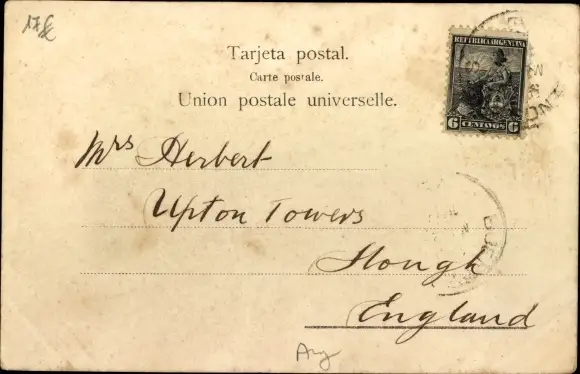 17
Tarjeta postal.
Carte postale.
Union postale universelle.
REPUBLICA ARGENTINA
6 CENTAVOS 6
Mrs Herbert
Upton Towers
Slough
England
Arg